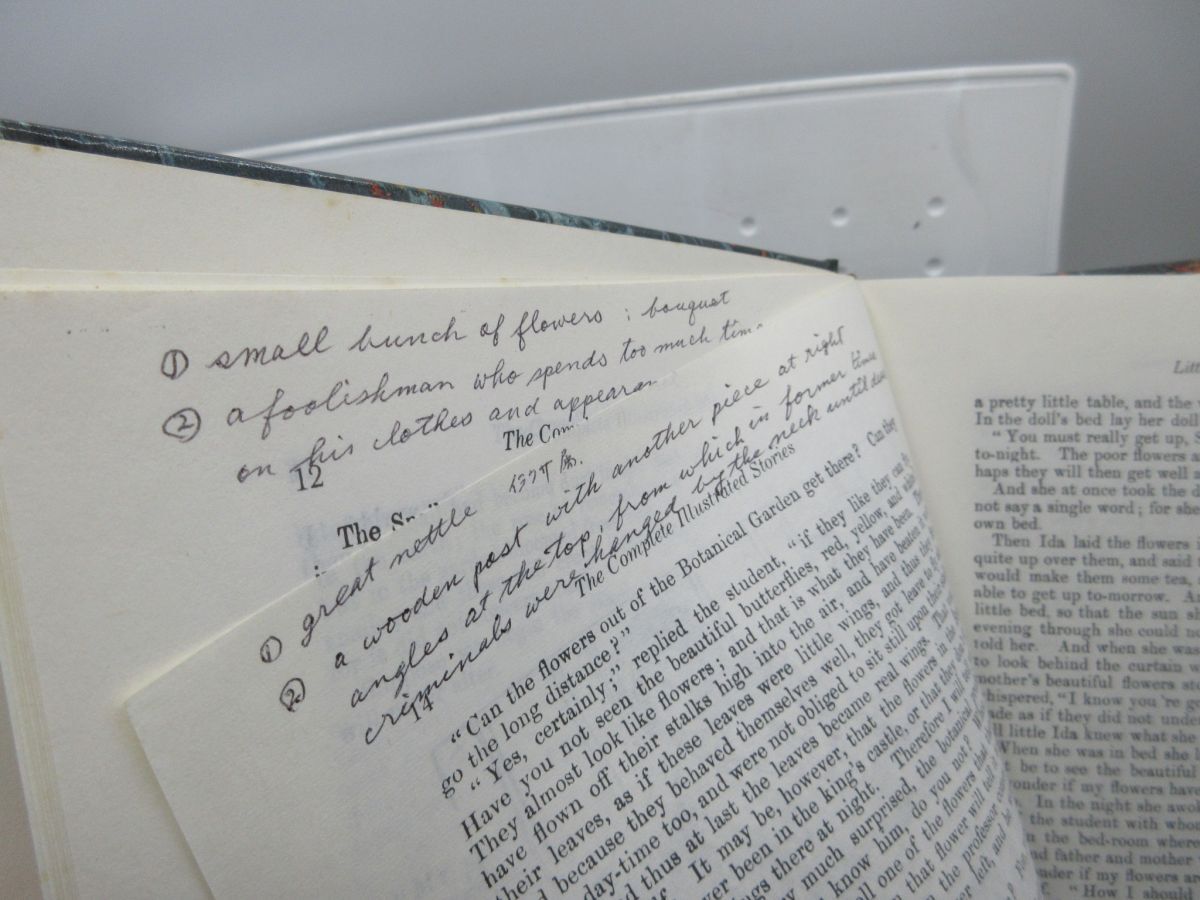 ① small bunch of flowers ; bouquet
② a foolishman who spends too much
on his clothes and
12
The
The
① great nettle イラクサ属.
② a wooden post with another piece at right
angles at the top, from which in former times
cripinals were hanged by the neck until
14
The Complete Illustrated Stories
“Can the flowers out of the Botanical Garden get there? Can they
go the long distance?”
“Yes, certainly,” replied the student, “if they like they can fly.
Have you not seen the beautiful butterflies, red, yellow, and
They almost look like flowers; and that is what they have been.
have flown off their stalks high into the air, and have beaten
their leaves, as if these leaves were little wings, and thus they
because they behaved themselves well, they got leave to
day-time too, and were not obliged to sit still upon their
thus at last the leaves became real wings. That
If. It may be, however, that the flowers in the
been in the king's castle, or that they
there at night. Therefore I will
much surprised, the botanical
know him, do you not?
one of the flowers that
that flower will tell
the professor
left, and
Litt
a pretty little table, and the
In the doll's bed lay her doll
“You must really get up, S
to-night. The poor flowers a
haps they will then get well
And she at once took the
not say a single word; for she
own bed.
Then Ida laid the flowers i
quite up over them, and said
would make them some tea,
able to get up to-morrow. A
little bed, so that the sun s
evening through she could n
told her. And when she was
to look behind the curtain
mother's beautiful flowers st
hispered, “I know you're g
ade as if they did not unde
ll little Ida knew what she
When she was in bed she
be to see the beautiful
onder if my flowers have
In the night she awo
the student with whos
n the bed-room where
nd father and mother
nder if my flowers ar
“How I should